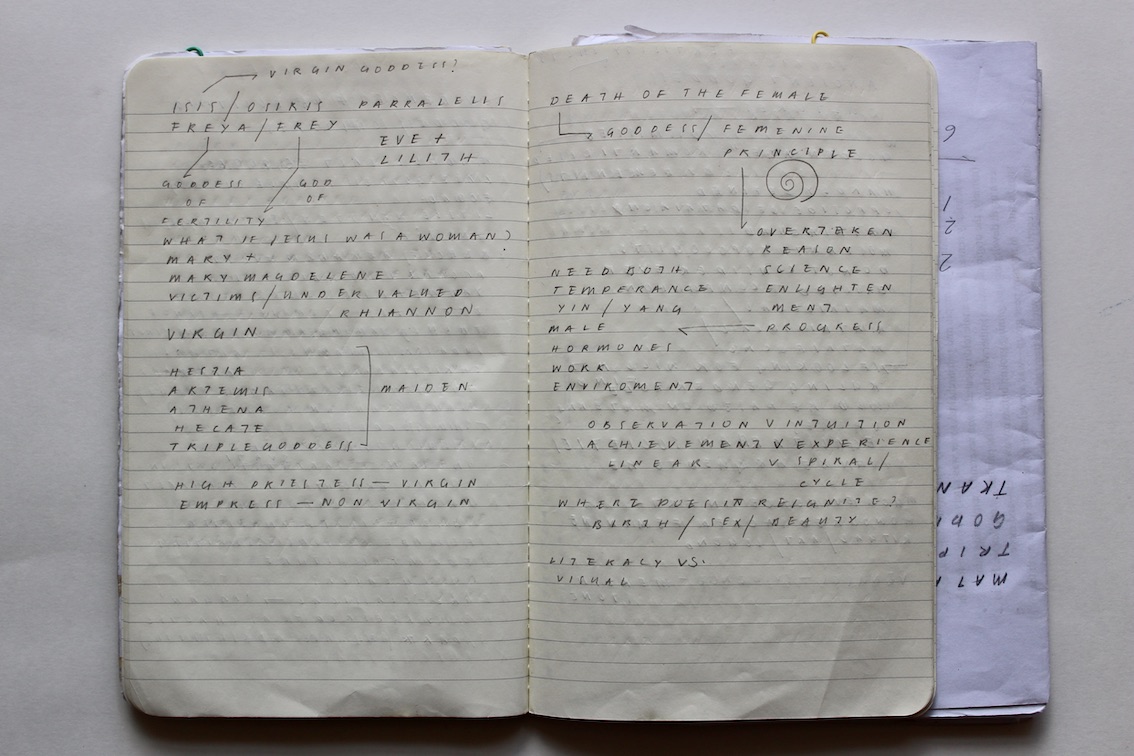 VIRGIN GODDESS?
ISIS / OSIRIS PARRALELLS
FREYA / FREY
EVE +
LILITH
GODDESS GOD
OF OF
FERTILITY
WHAT IF JESUS WAS A WOMAN?
MARY +
MARY MAGDELENE
VICTIMS / UNDER VALUED
RHIANNON
VIRGIN
HESTIA
ARTEMIS
ATHENA
HECATE
TRIPLE GODDESS
MAIDEN
HIGH PRIESTESS — VIRGIN
EMPRESS — NON VIRGIN
DEATH OF THE FEMALE
GODDESS / FEMENINE
PRINCIPLE
OVERTAKEN
REASON
SCIENCE
ENLIGHTEN
MENT
PROGRESS
NEED BOTH
TEMPERANCE
YIN / YANG
MALE
HORMONES
WORK
ENVIROMENT
OBSERVATION V INTUITION
ACHIEVEMENT V EXPERIENCE
LINEAR V SPIRAL/
CYCLE
WHERE DOES IT REIGNITE?
BIRTH / SEX / BEAUTY
LITERACY VS.
VISUAL
6
1
2
2
MAT
TRIP
GOD
TRAN